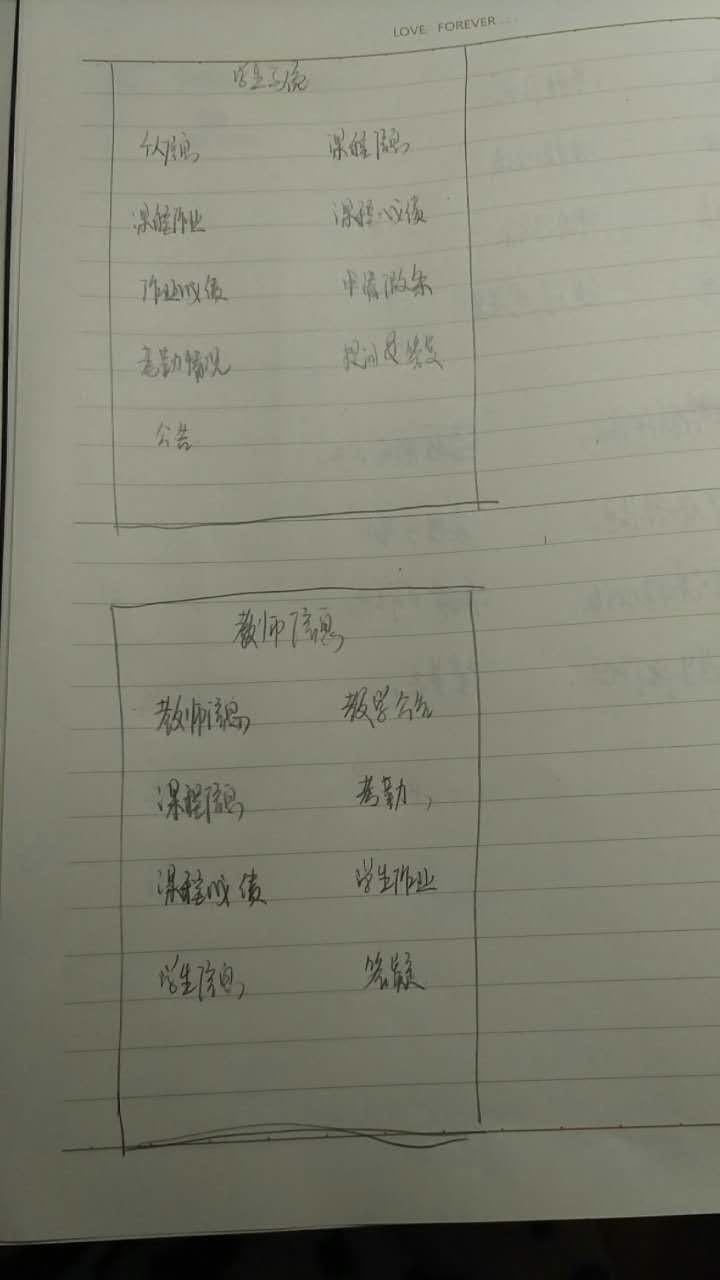 LOVE FOREVER...
学生系统
个人信息 课程信息
课程作业 课程成绩
作业成绩 申请假条
考勤情况 提问及答复
公告
教师信息
教师信息 教学公告
课程信息 考勤
课程成绩 学生作业
学生信息 答疑